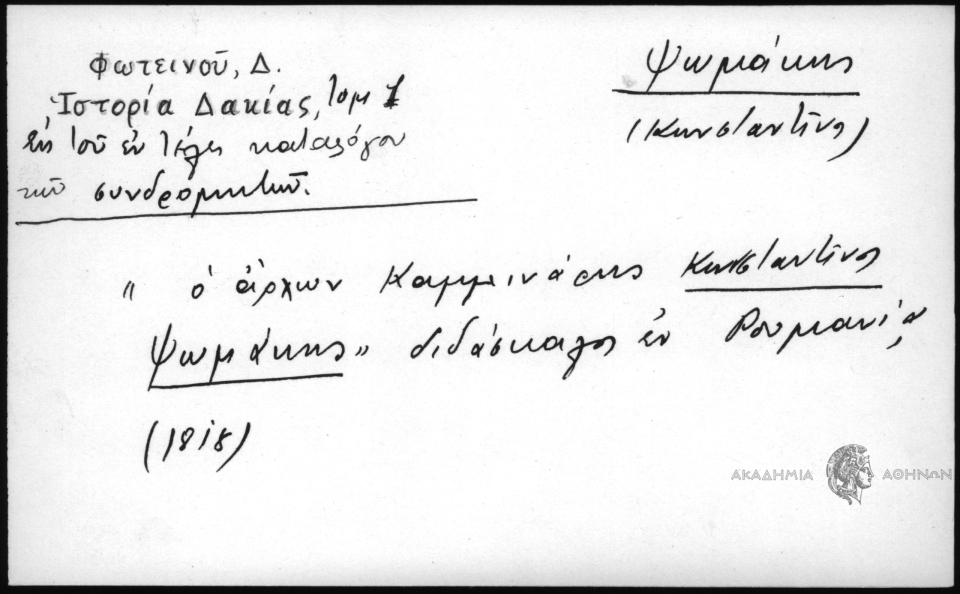 Φωτεινοῦ, Δ.
Ἱστορία Δακίας, τομ 1
ἐκ τοῦ ἐν τέλει καταλόγου
τῶν συνδρομητῶν.
Ψωμάκης
(Κωνσταντῖνος)
" ὁ ἄρχων Καμμινάρης Κωνσταντῖνος
Ψωμάκης" διδάσκαλος ἐν Ρουμανίᾳ
(1818)
ΑΚΑΔΗΜΙΑ ΑΘΗΝΩΝ